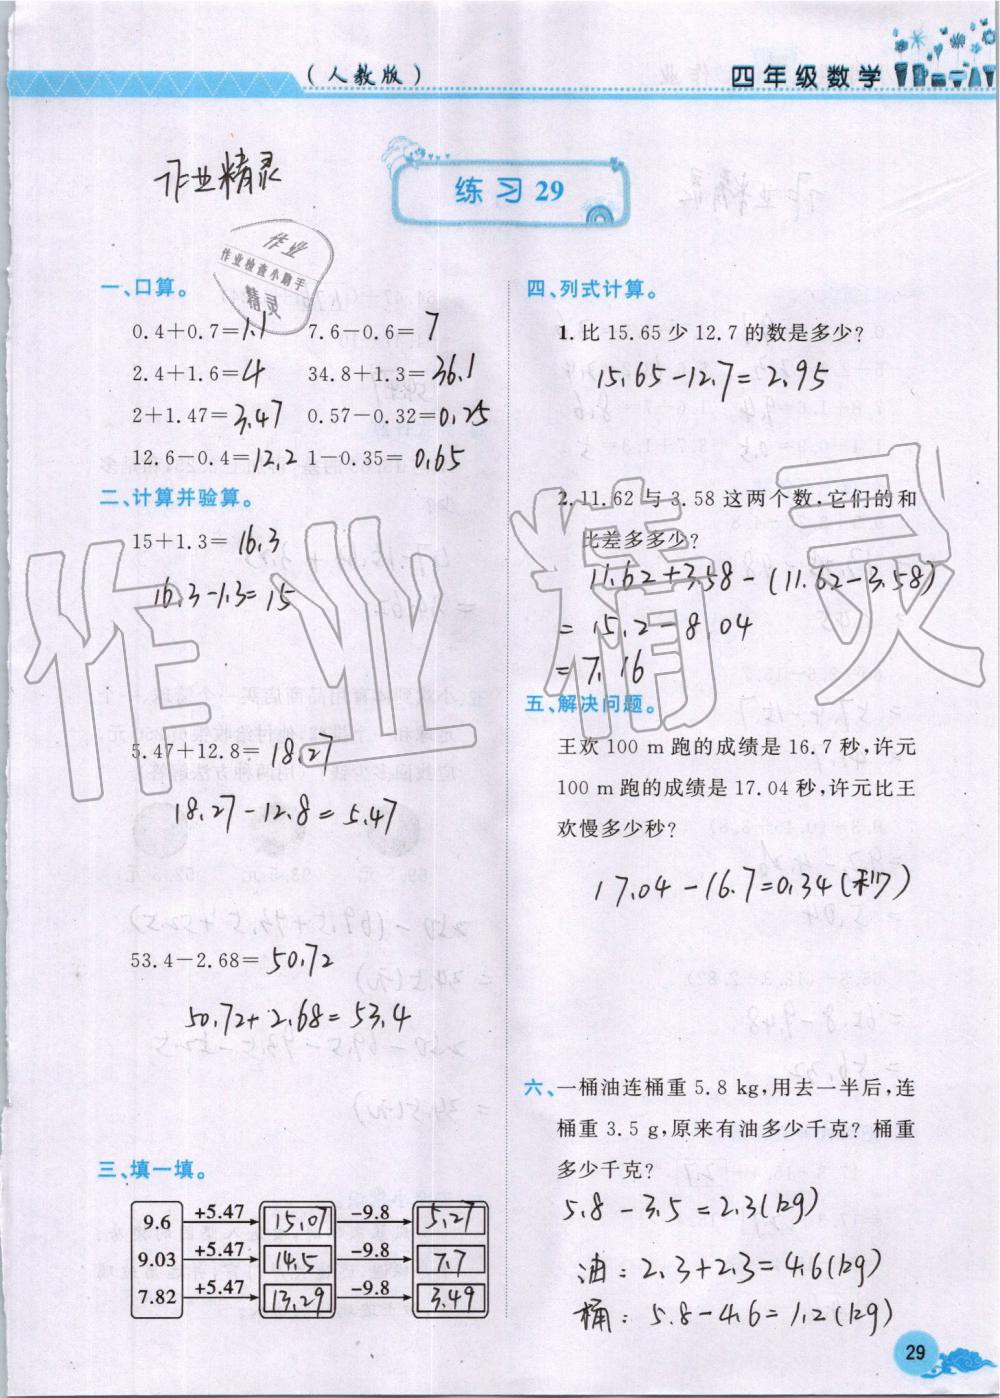 （人教版）
四年级数学
作业精灵
练习29
作业
作业检查小助手
精灵
一、口算。
0.4+0.7=1.1 7.6-0.6=7
2.4+1.6=4 34.8+1.3=36.1
2+1.47=3.47 0.57-0.32=0.25
12.6-0.4=12.2 1-0.35=0.65
二、计算并验算。
15+1.3=16.3
16.3-1.3=15
5.47+12.8=18.27
18.27-12.8=5.47
53.4-2.68=50.72
50.72+2.68=53.4
三、填一填。
9.6 +5.47 15.07 -9.8 5.27
9.03 +5.47 14.5 -9.8 7.7
7.82 +5.47 13.29 -9.8 3.49
四、列式计算。
1.比15.65少12.7的数是多少?
15.65-12.7=2.95
2.11.62与3.58这两个数,它们的和
比差多多少?
11.62+3.58-(11.62-3.58)
=15.2-8.04
=7.16
五、解决问题。
王欢100 m跑的成绩是16.7秒,许元
100 m跑的成绩是17.04秒,许元比王
欢慢多少秒?
17.04-16.7=0.34(秒)
六、一桶油连桶重5.8 kg,用去一半后,连
桶重3.5 g,原来有油多少千克? 桶重
多少千克?
5.8-3.5=2.3(kg)
油:2.3+2.3=4.6(kg)
桶:5.8-4.6=1.2(kg)
29
作业精灵